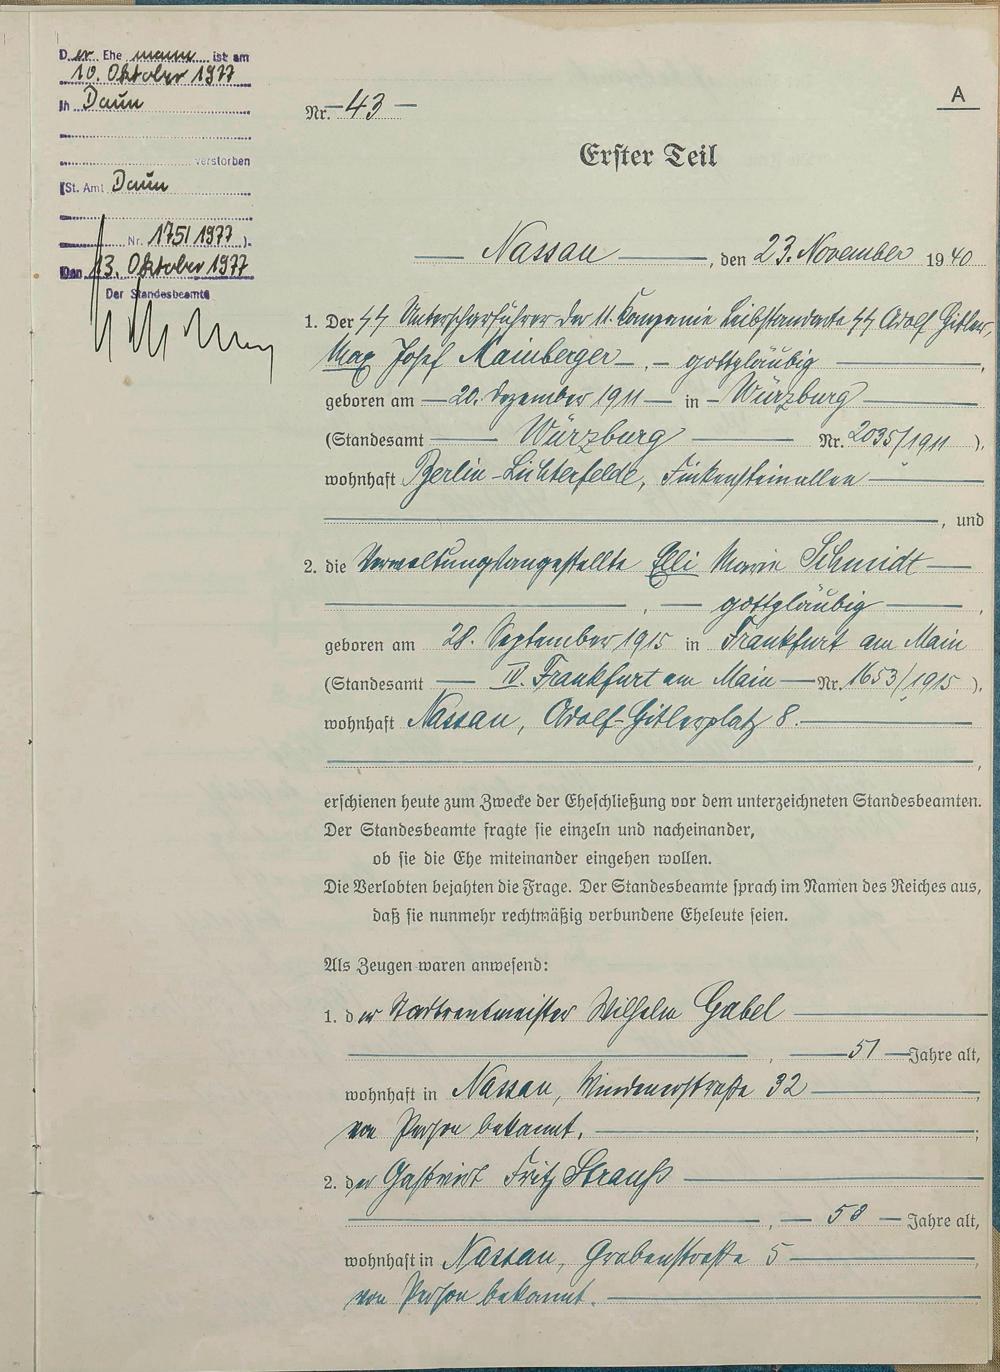 Der Ehe mann ist am
10. Oktober 1977
in Daun
verstorben
(St. Amt Daun
Nr. 175/1977 ).
Den 13. Oktober 1977
Der Standesbeamte
A
Nr. 43
Erster Teil
Nassau, den 23. November 1940
1. Der SS Unterscharführer der 11. Kompanie Leibstandarte SS Adolf Hitler,
Max Josef Mainberger, gottgläubig,
geboren am 20. Dezember 1911 in Würzburg
(Standesamt Würzburg Nr. 2035/1911 ).
wohnhaft Berlin-Lichterfelde, Finkensteinallee
, und
2. die Verwaltungsangestellte Elli Marie Schmidt
, gottgläubig,
geboren am 28. September 1915 in Frankfurt am Main
(Standesamt IV. Frankfurt am Main Nr. 1653/1915 ).
wohnhaft Nassau, Adolf-Hitlerplatz 8.
,
erschienen heute zum Zwecke der Eheschließung vor dem unterzeichneten Standesbeamten.
Der Standesbeamte fragte sie einzeln und nacheinander,
ob sie die Ehe miteinander eingehen wollen.
Die Verlobten bejahten die Frage. Der Standesbeamte sprach im Namen des Reiches aus,
daß sie nunmehr rechtmäßig verbundene Eheleute seien.
Als Zeugen waren anwesend:
1. der Stadtrentmeister Wilhelm Gabel
, 51 Jahre alt,
wohnhaft in Nassau, Windenerstraße 32;
von Person bekannt.;
2. der Gastwirt Fritz Strauß
, 58 Jahre alt,
wohnhaft in Nassau, Grabenstraße 5,
von Person bekannt.